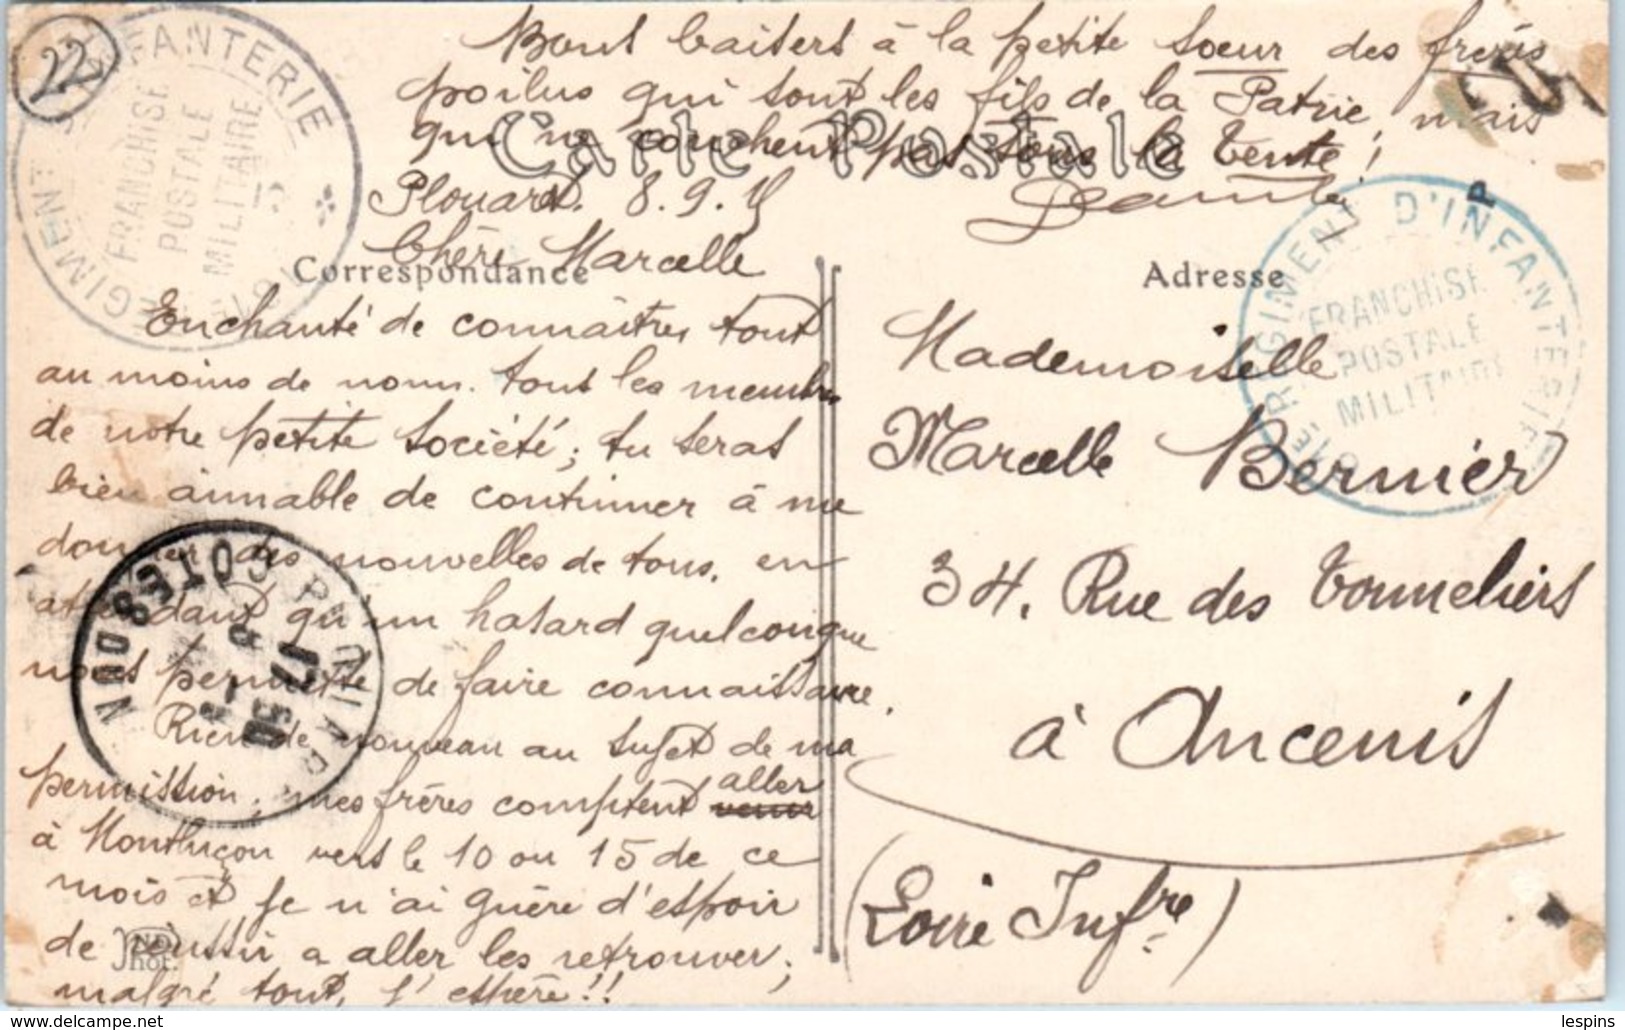 22
Bons baisers à la petite soeur des frères
poilus qui sont les fils de la Patrie, mais
qui ne couchent pas sous la tente!
Carte Postale
8.9.
Chère Marcelle
Correspondance
Enchanté de connaître, tout
au moins de nom, tous les membres
de notre petite société; tu seras
bien aimable de continuer à me
donner des nouvelles de tous, en
attendant qu'un hasard quelconque
nous permette de faire connaissance.
Rien de nouveau au sujet de ma
permission; mes frères comptent aller
à Montluçon vers le 10 ou 15 de ce
mois et je n'ai guère d'espoir
de réussir a aller les retrouver;
malgré tout, j'espère!!
ND
Phot.
Adresse
Mademoiselle
Marcelle Bernier
34, Rue des Tonneliers
à Ancenis
(Loire Infre)
REGIMENT INFANTERIE
FRANCHISE
POSTALE
MILITAIRE
REGIMENT D'INFANTERIE
FRANCHISE
POSTALE
MILITAIRE
COTES DU N
17 50
lespins